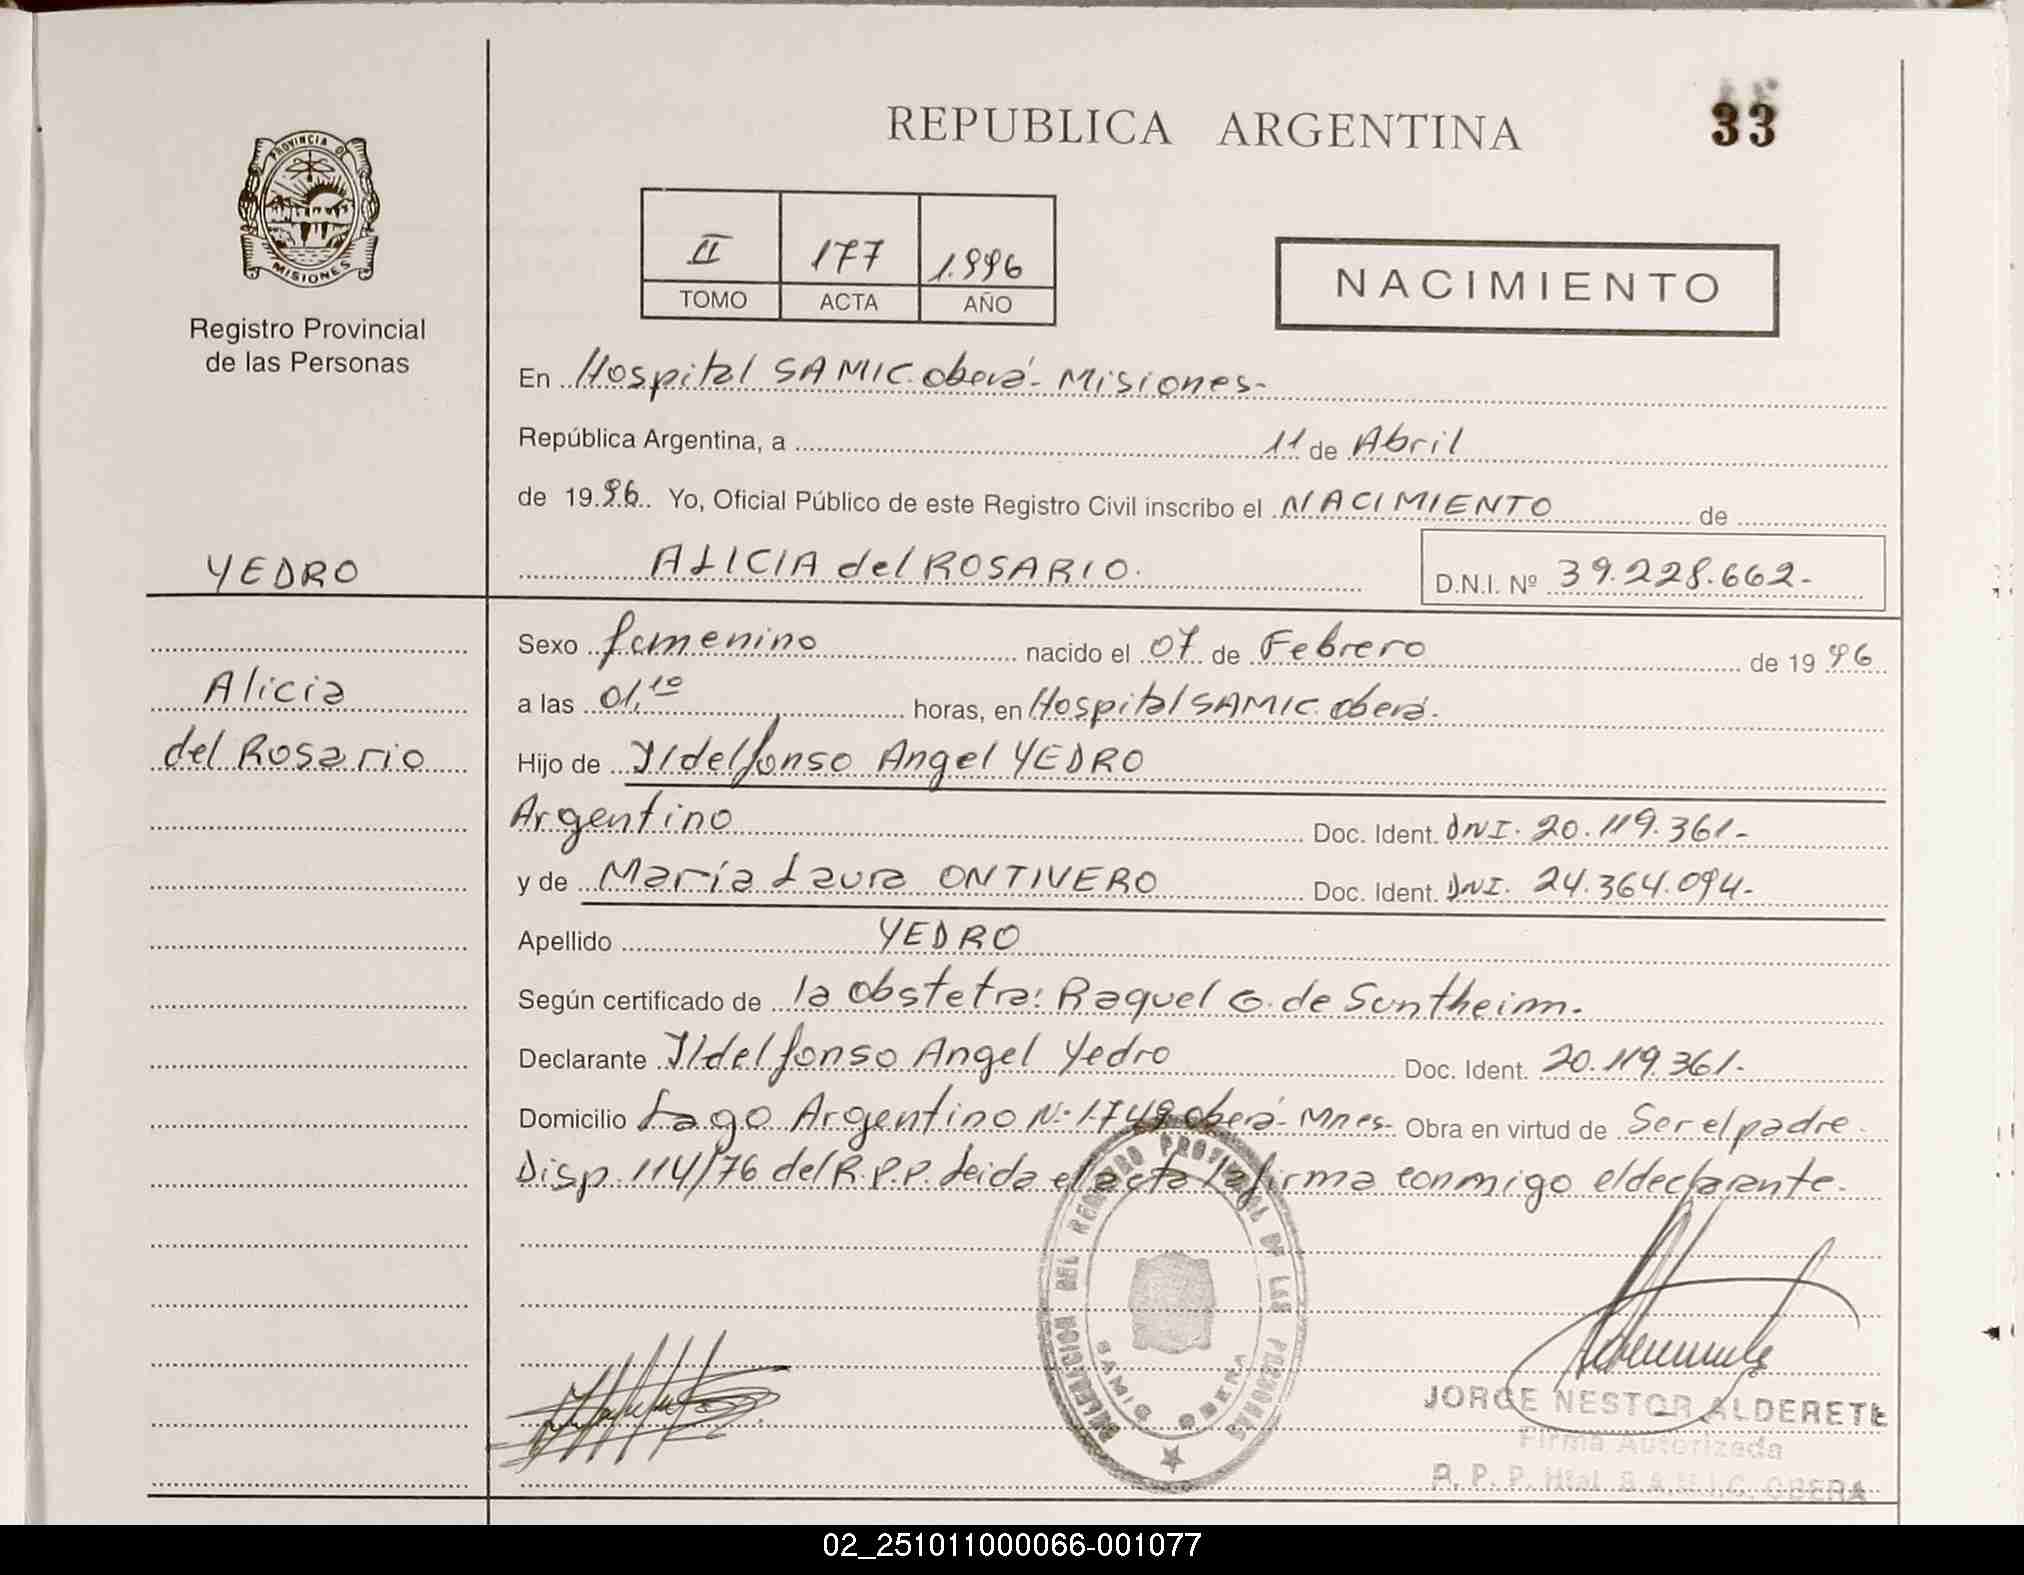 REPUBLICA ARGENTINA
33
PROVINCIA DE
MISIONES
Registro Provincial
de las Personas
II 177 1.996
TOMO ACTA AÑO
NACIMIENTO
En Hospital SAMIC. oberá- Misiones-
República Argentina, a 11 de Abril
de 19.96. Yo, Oficial Público de este Registro Civil inscribo el NACIMIENTO de
YEDRO
ALICIA del ROSARIO. D.N.I. Nº 39.228.662.-
Sexo femenino nacido el 07 de Febrero de 19 96
Alicia
a las 01,10 horas, en Hospital SAMIC. oberá.
del Rosario
Hijo de Ildelfonso Angel YEDRO
Argentino Doc. Ident. DNI. 20.119.361.-
y de María Laura ONTIVERO Doc. Ident. DNI. 24.364.094.-
Apellido YEDRO
Según certificado de la obstetra: Raquel G. de Suntheim.
Declarante Ildelfonso Angel Yedro Doc. Ident. 20.119.361.-
Domicilio Lago Argentino N: 1.749 oberá- Mnes- Obra en virtud de Ser el padre.
Disp. 114/76 del R.P.P. Leida el acta la firma conmigo el declarante.
DEL REGISTRO PROVINCIAL DE LAS PERSONAS
SAMIC OBERA
JORGE NESTOR ALDERETE
Firma Autorizada
R. P. P. Htal. S.A.M.I.C. OBERA
02_251011000066-001077